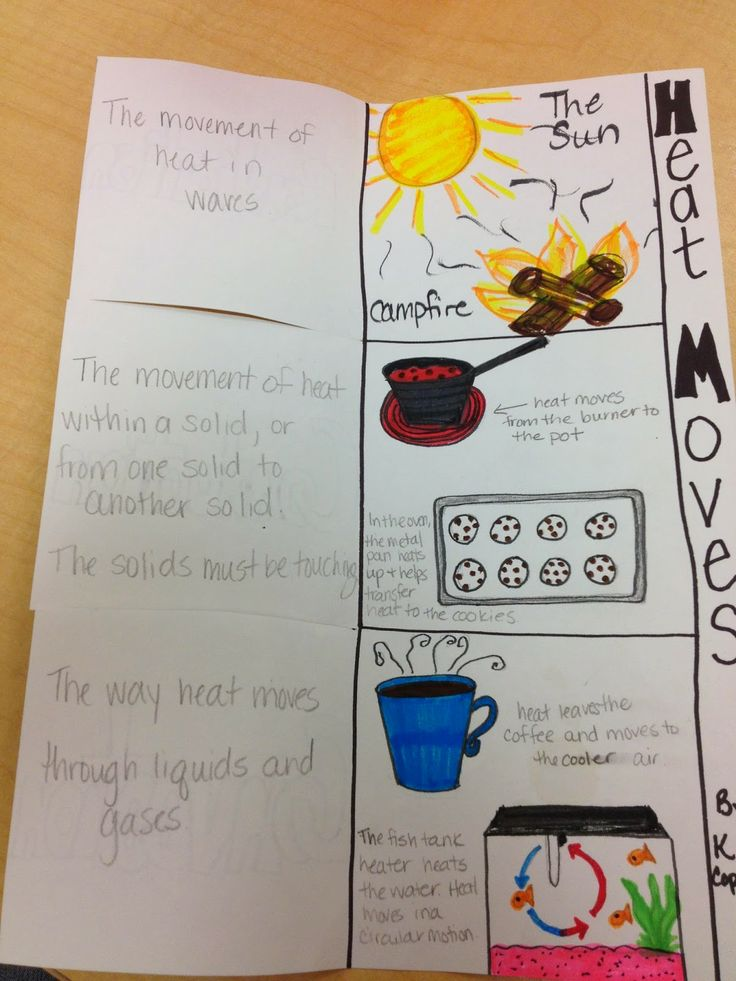 The movement of
heat in
waves
The
Sun
campfire
The movement of heat
within a solid, or
from one solid to
another solid!
The solids must be touching
heat moves
from the burner to
the pot
In the oven,
the metal
pan hats
up + helps
transfer
heat to the cookies.
The way heat moves
through liquids and
gases.
heat leaves the
coffee and moves to
the cooler air
The fish tank
heater heats
the water. Heat
moves in a
circular motion.
Heat Moves
K